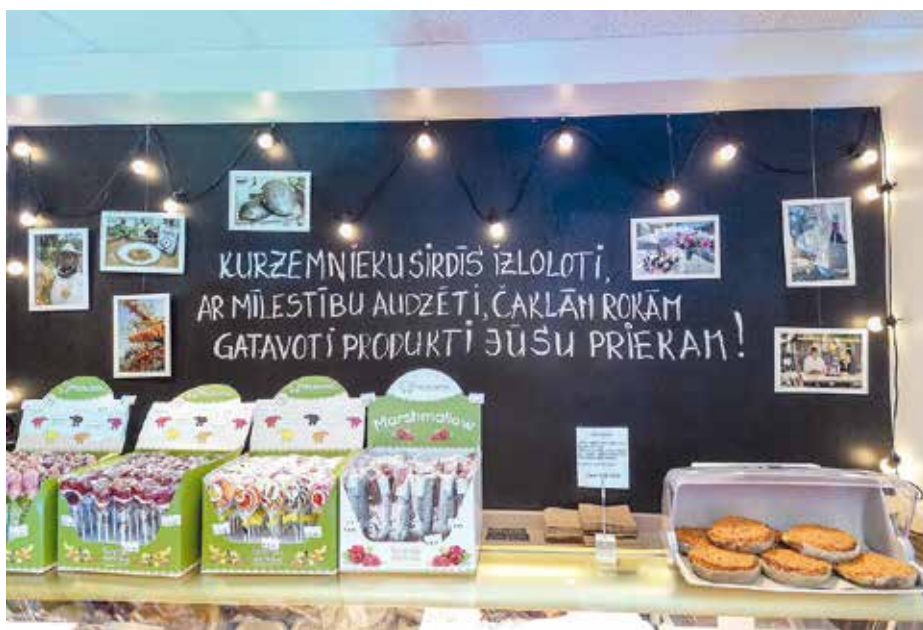 KURZEMNIEKU SIRDĪS IZLOLOTI,
AR MĪLESTĪBU AUDZĒTI, ČAKLĀM ROKĀM
GATAVOTI PRODUKTI JŪSU PRIEKAM!
Marshmallow